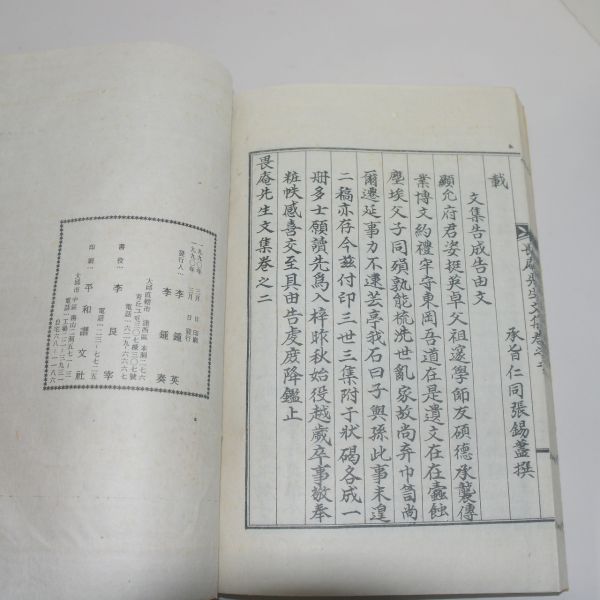 載
文集告成告由文
承旨仁同張錫蓋撰
顯允府君姿挺英卓父祖邃學師友碩德承襲傳
業博文約禮牢守東岡吾道在是遺文在在蠹蝕
塵埃父子同殞孰能梳洗世亂家故尚弃巾笥尚
爾遷延事力不逮芸亭我石曰子與孫此事未遑
二稿亦存今玆付印三世三集附于狀碣各成一
冊多士願讀先爲入梓昨秋始役越歲卒事敬奉
粧帙感喜交至具由告虔庶降鑑止
畏庵先生文集卷之二
畏庵先生文集卷之二
一九九〇年 三月 日 印刷
一九九〇年 三月 日 發行
發行人 李鍾英
李鍾奏
大邱直轄市
書役 李良宰
印刷 平和譜文社